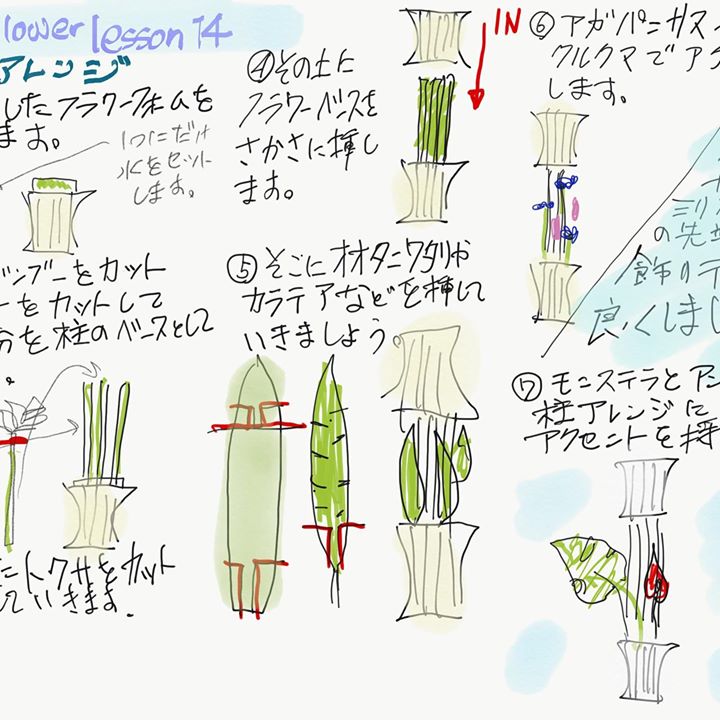 lower lesson 14
アレンジ
したフラワーフォームを
ます。
1つにだけ
水をセット
します。
バンブーをカット
ーをカットして
分を柱のベースとして
。
にトクサをカット
していきます.
④その上に
フラワーベースを
さかさに挿し
ます。
IN
⑤そこにオオタニワタリや
カラテアなどを挿して
いきましょう。
⑥アガパンサス
クルクマでアク
します。
ミリ
の先
飾りのテ
良くしまし
⑦モンステラとアン
柱アレンジに
アクセントを